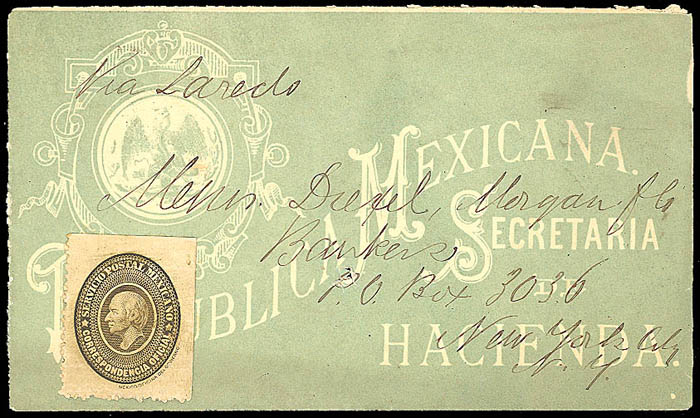 Via Laredo
REPUBLICA MEXICANA.
SECRETARIA
DE
HACIENDA.
Messrs. Drexel, Morgan & Co
Bankers
P.O. Box 3036
New York City
N.Y.
SERVICIO POSTAL MEXICANO
CORRESPONDENCIA OFICIAL